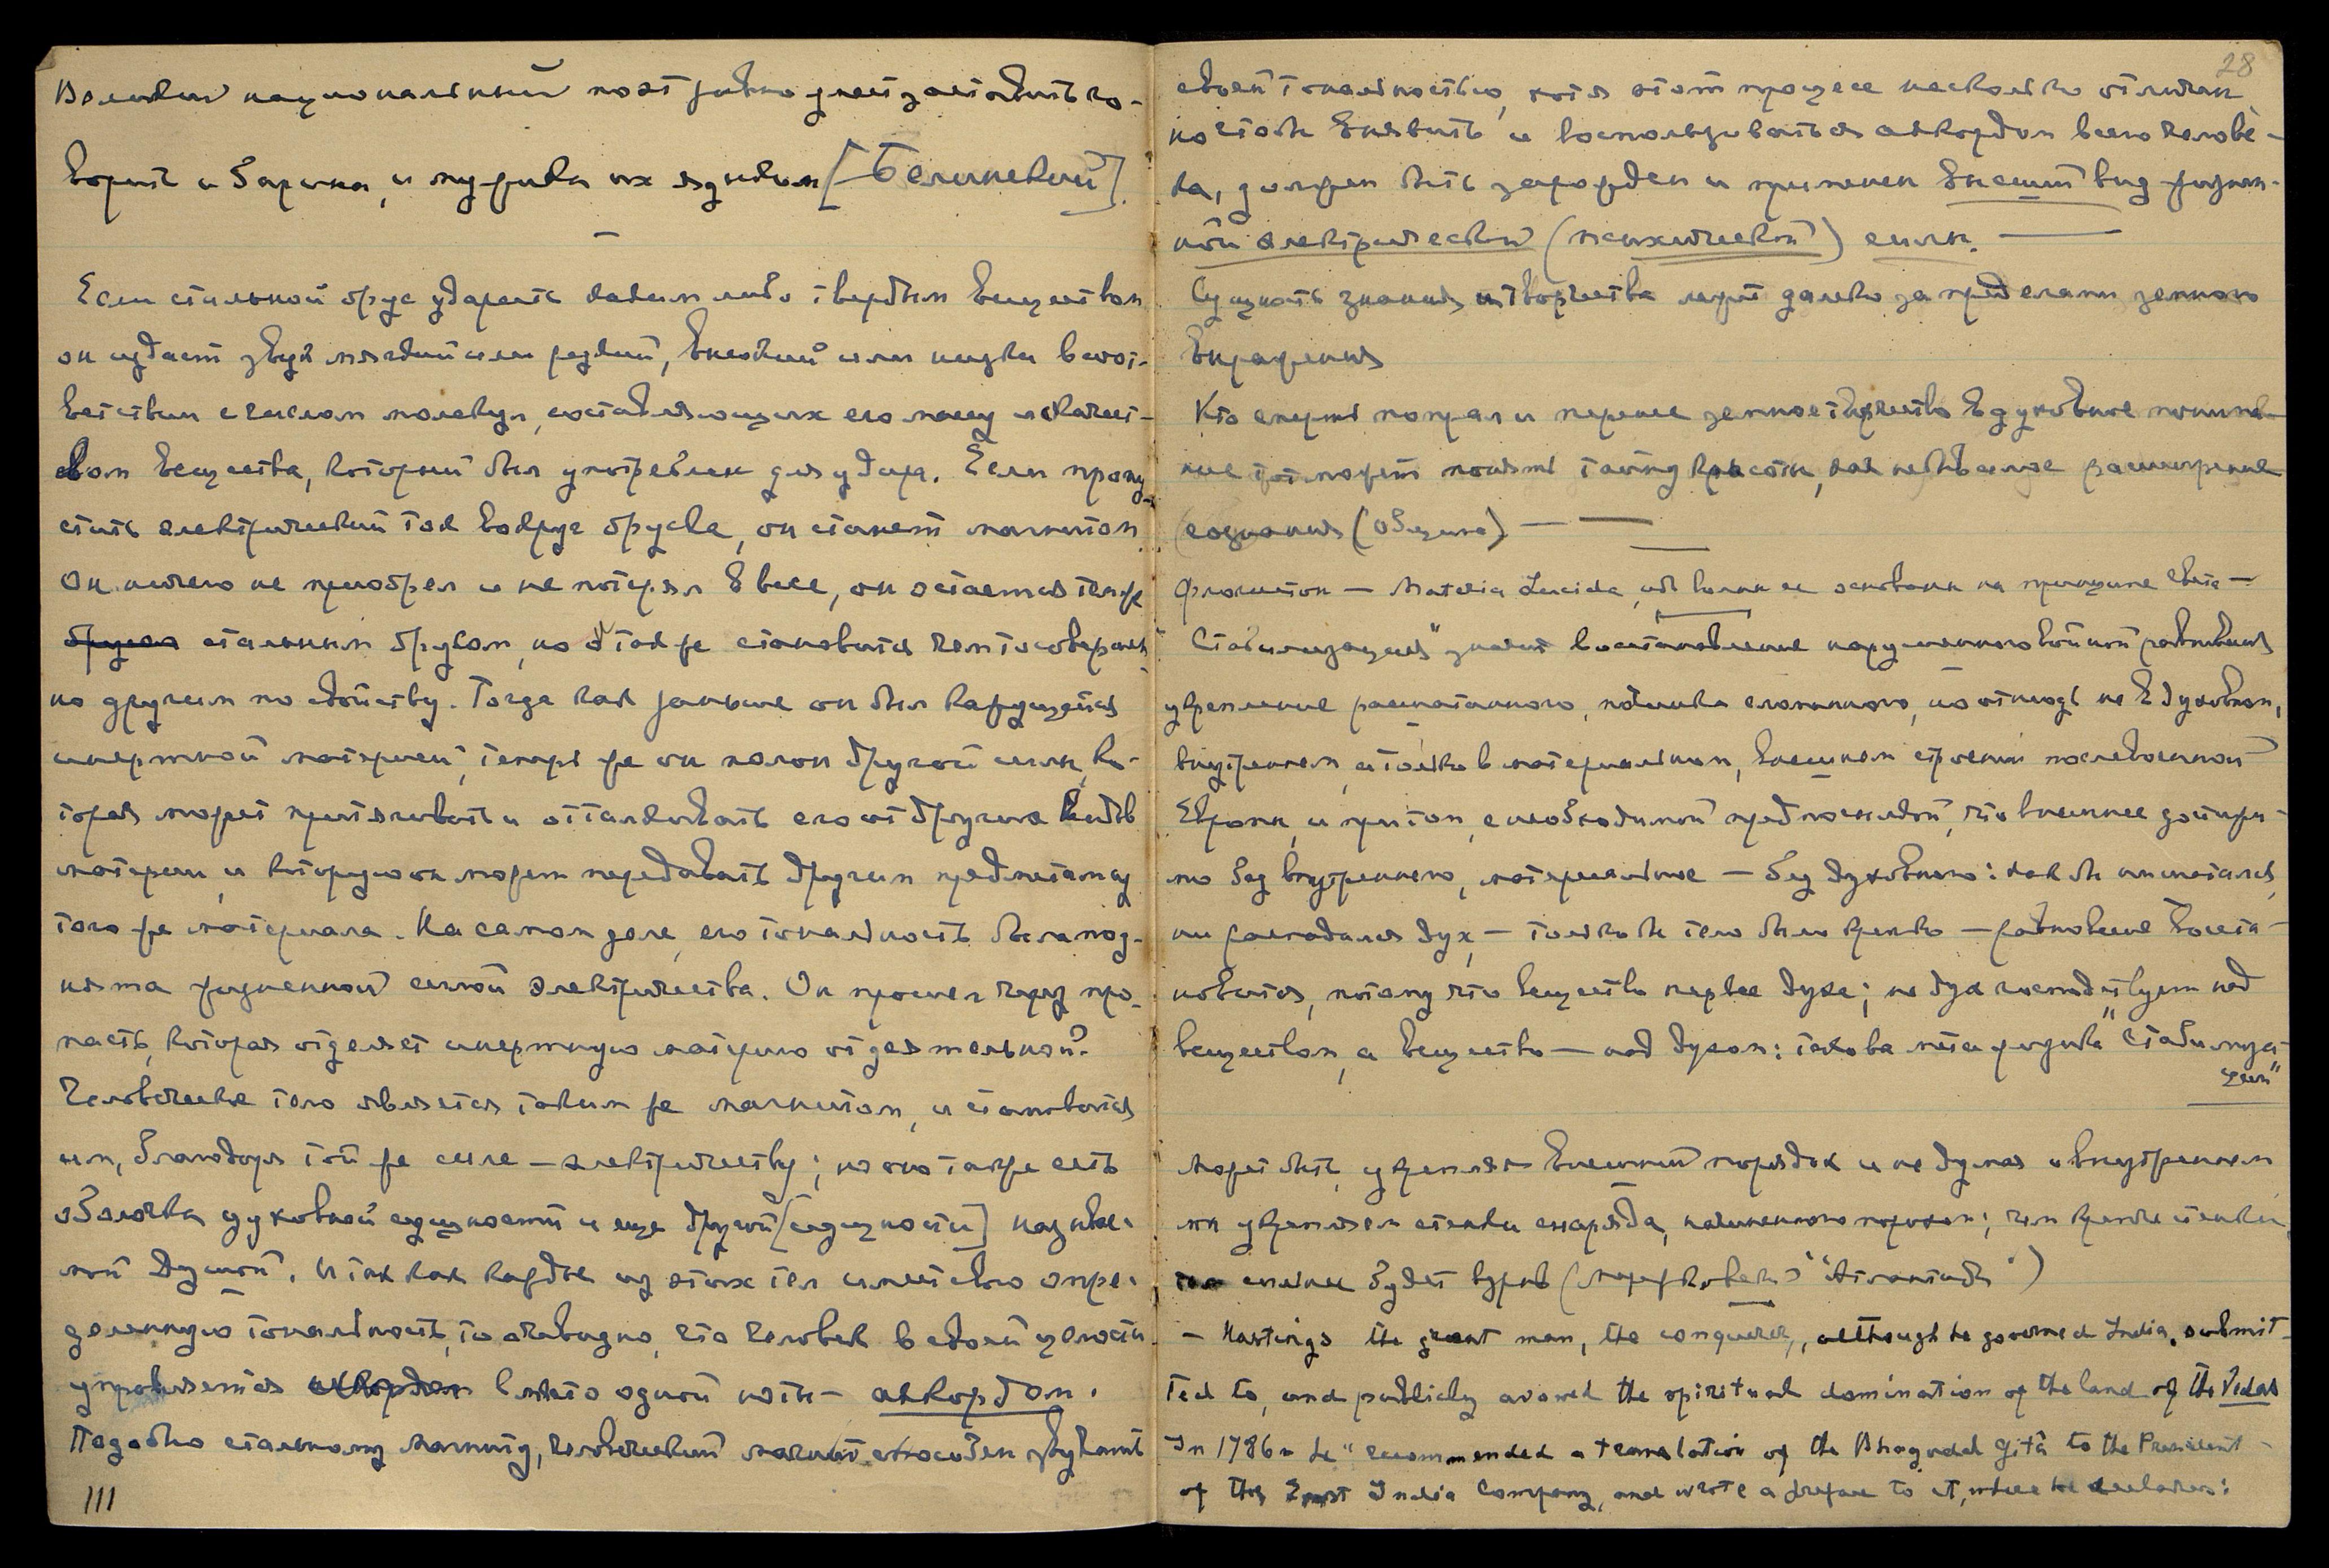 Великий национальный поэт равно умеет заставить го-
ворить и барина, и мужика их языком [Белинский].
Если стальной брус ударить каким либо твердым веществом
он издает звук мягкий или резкий, высокий или низкий в соот-
ветствии с числом молекул, составляющих его массу и качест-
вом вещества, который был употреблен для удара. Если пропу-
стить электрический ток вокруг бруска, он станет магнитом
Он ничего не приобрел и не потерял в весе, он остается тем же
стальным бруском, но также становится чем то совершен-
но другим по свойству. Тогда как раньше он был кажущейся
инертной материей, теперь же он полон другой силы, ко-
торая может притягивать и отталкивать его от других видов
материи, и которую он может передавать другим предметам из
того же материала. На самом деле, его тональность была под-
нята жизненной силой электричества. Он прошел через про-
пасть, которая отделяет инертную материю от деятельной?
Человеческое тело является таким же магнитом, и становится
им, благодаря той же силе – электричеству; но оно также есть
оболочка духовной сущности и еще другой [сущности] называе-
мой душой. И так как каждое из этих тел имеет свою опре-
деленную тональность, то очевидно, что человек в своей целости
управляется вместо одной ноты – аккордом.
Подобно стальному магниту, человеческий магнит способен звучать
111
28
своей тональностью, хотя этот процесс несколько отличен
но чтобы вызвать и воспользоваться аккордом всего челове-
ка, должен быть зарожден и применен высший вид жизнен-
ной электрической (психической) силы.
Сущность знания и творчества лежит далеко за пределами земного
выражения
Кто смерть попрал и перенес земное творчество в духовное понима-
ние тот может понять тайну красоты, как небывалое расширение
сознания (Община)
Флогистон – Materia Lucida, основаны на принципе света –
"Стабилизация" значит восстановление нарушенного войной равновесия
укрепление расшатанного, починка сломанного, но отнюдь не в духовном,
внутреннем, а только в материальном, внешнем строении послевоенной
Европы, и притом, с необходимой предпосылкой, что внешнее достижи-
мо без внутреннего, материальное – без духовного: как бы ни шатался,
ни распадался дух, – только бы тело было крепко – равновесие восста-
новится, потому что вещество первее духа; не дух господствует над
веществом, а вещество – над духом: такова метафизика "стабилиза-
ции"
Может быть, укрепляя внешний порядок и не думая о внутреннем
мы укрепляем стенки снаряда, начиненного порохом; чем крепче стенки,
тем сильнее будет взрыв (Мережковск. "Атлантида")
– Hastings the great man, the conqueror, although he governed India, submit-
ted to, and publicly avowed the spiritual domination of the land of the Vedas
In 1786 he "recommended a translation of the Bhagavad Gîtâ to the President
of the East India Company, and wrote a preface to it, where he declares: